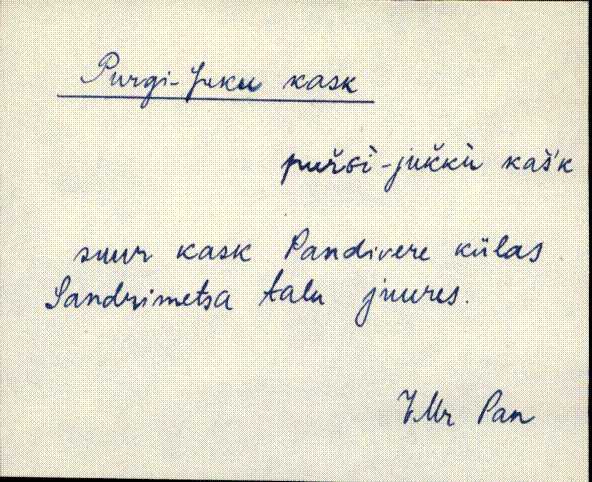 Purgi-Juku kask
purgi-jukku kašk
suur kask Pandivere külas
Sandrimetsa talu juures.
VMr Pan